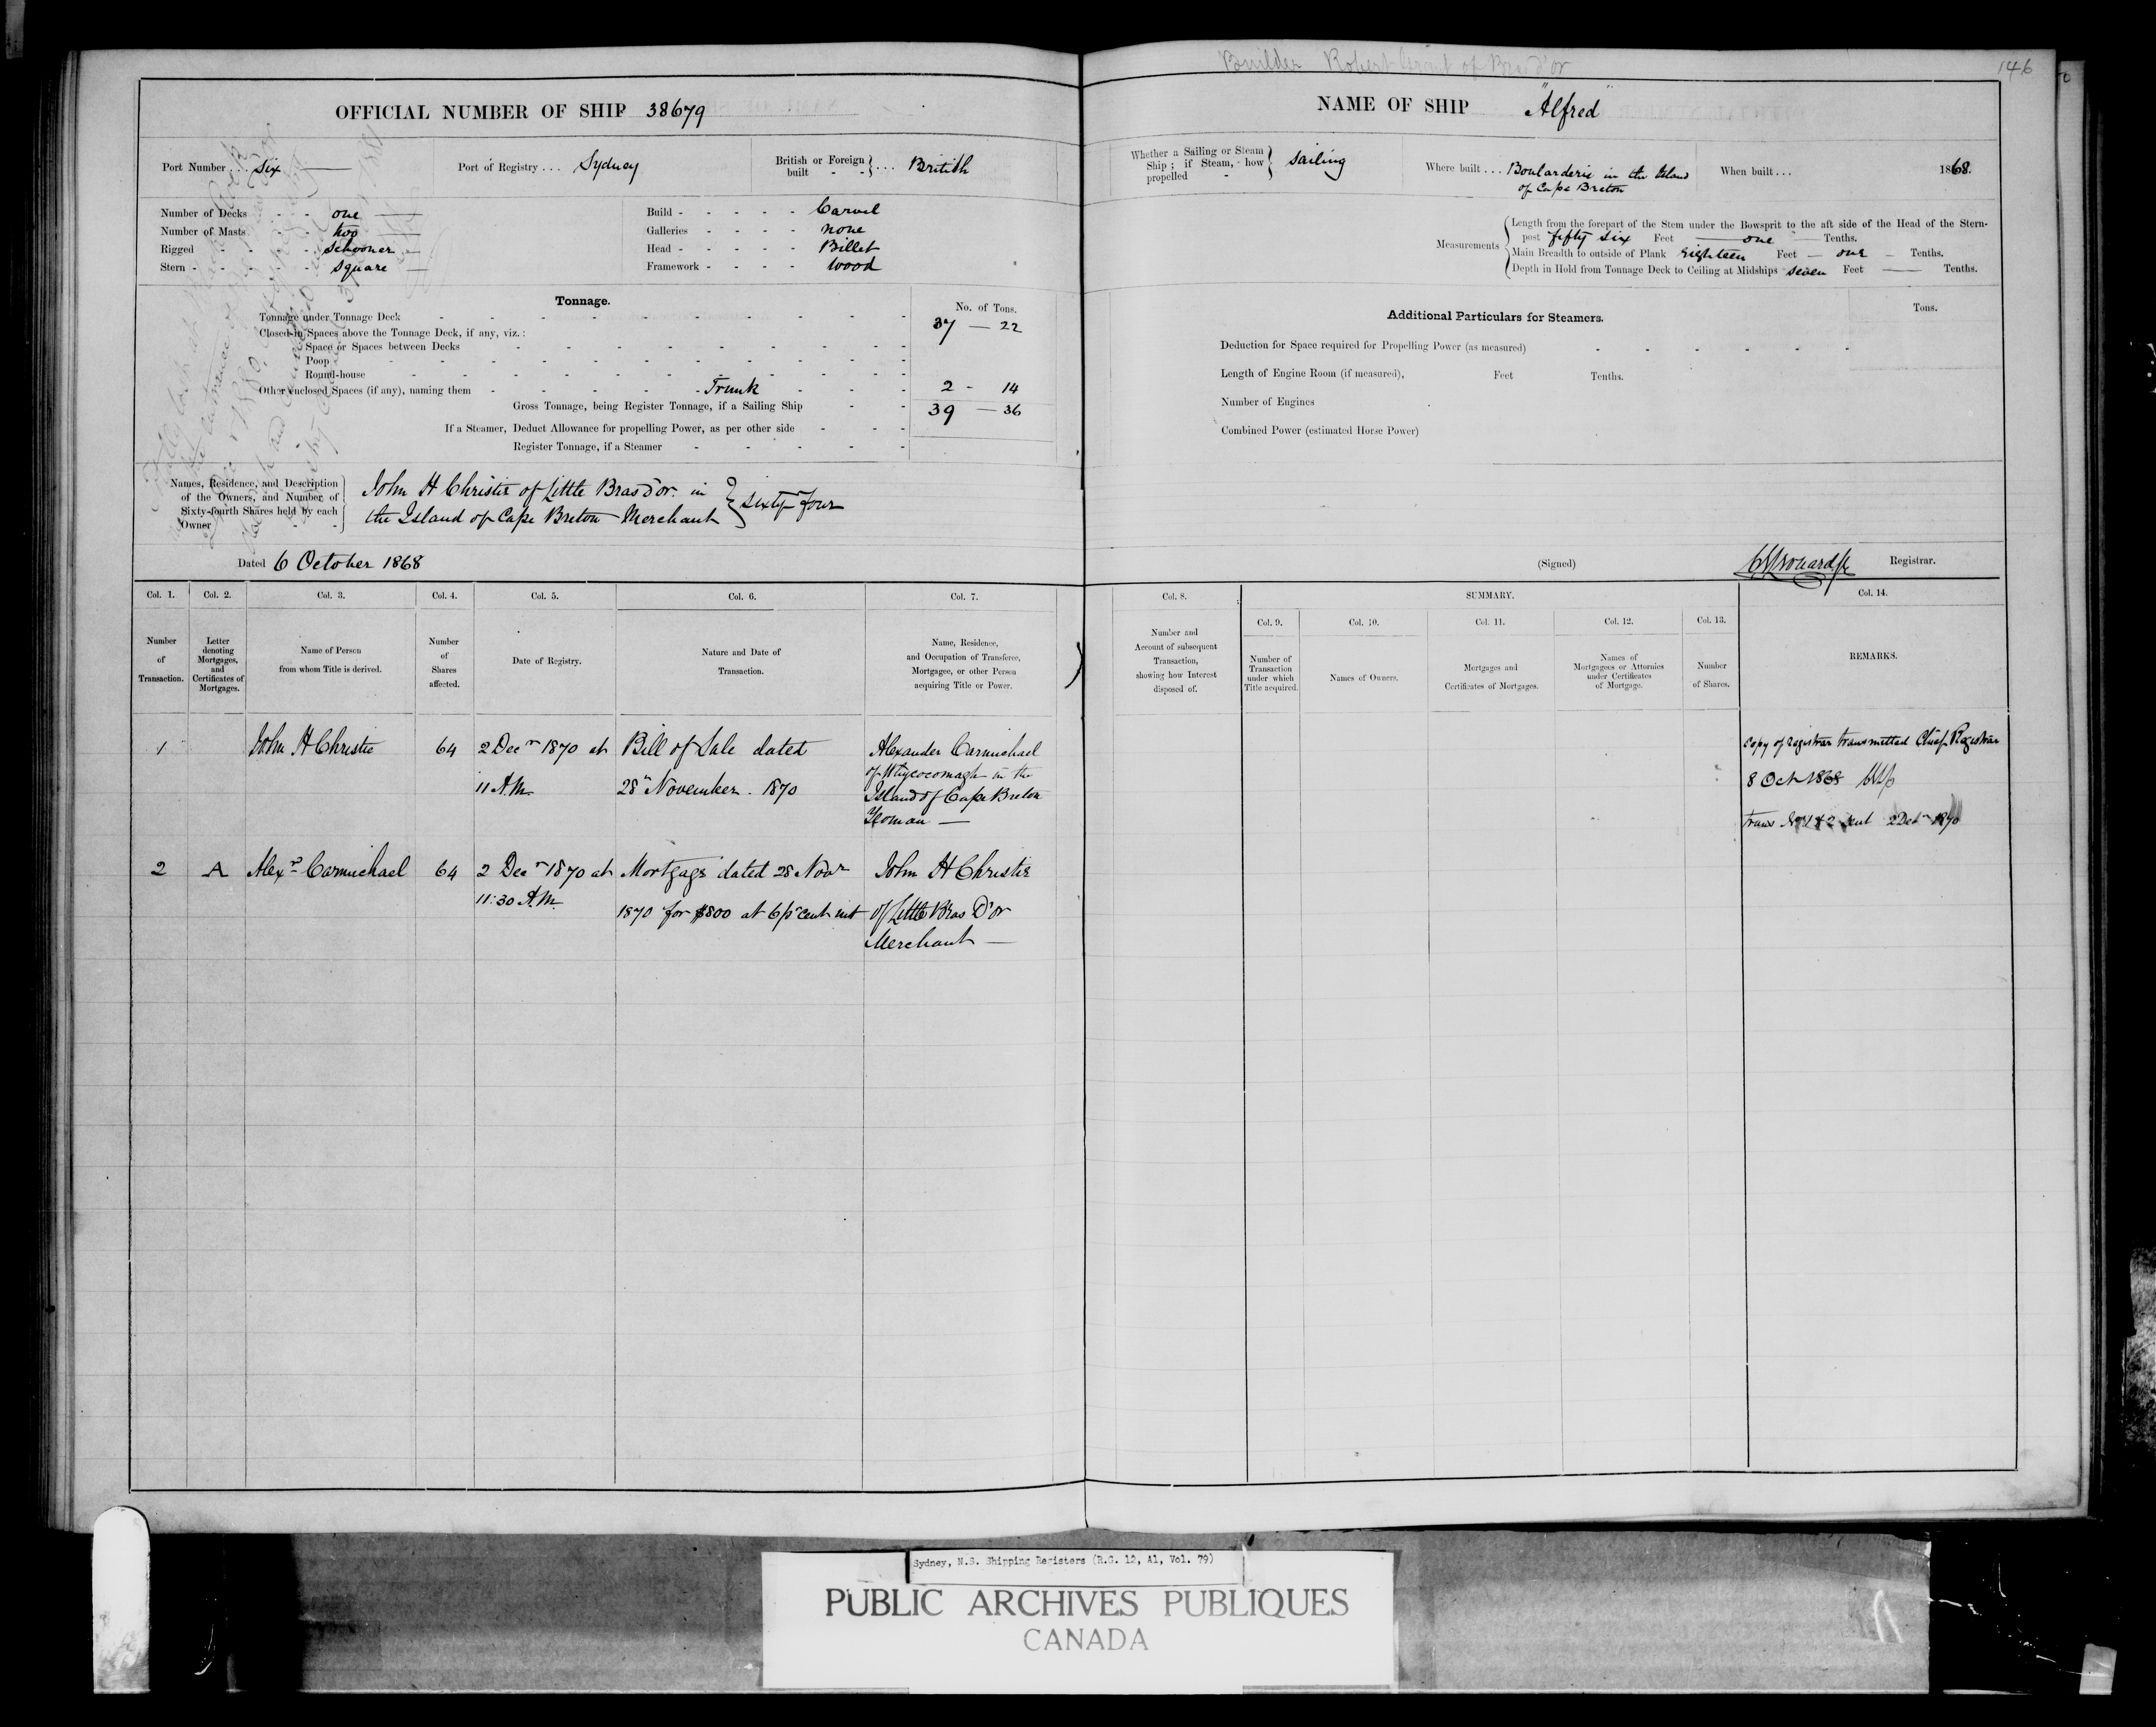 Builder Robert of Bras d'or
146
OFFICIAL NUMBER OF SHIP 38679
NAME OF SHIP "Alfred"
Port Number ... six
Port of Registry ... Sydney
British or Foreign built - - } ... British
Whether a Sailing or Steam Ship; if Steam, how propelled - } sailing
Where built ... Boularderie in the Island
of Cape Breton
When built ... 1868.
Number of Decks - - one
Number of Masts - - two
Rigged - - - schooner
Stern - - - - square
Build - - - - - Carvel
Galleries - - - - none
Head - - - - - Billet
Framework - - - - wood
Measurements
Length from the forepart of the Stem under the Bowsprit to the aft side of the Head of the Stern-
post fifty six Feet one Tenths.
Main Breadth to outside of Plank Eighteen Feet — one - Tenths.
Depth in Hold from Tonnage Deck to Ceiling at Midships seven Feet — Tenths.
Tonnage.
No. of Tons.
Tonnage under Tonnage Deck 37 — 22
Closed-in Spaces above the Tonnage Deck, if any, viz.:
Space or Spaces between Decks
Poop
Round-house
Other enclosed Spaces (if any), naming them - Trunk 2 - 14
Gross Tonnage, being Register Tonnage, if a Sailing Ship 39 — 36
If a Steamer, Deduct Allowance for propelling Power, as per other side
Register Tonnage, if a Steamer
Additional Particulars for Steamers.
Tons.
Deduction for Space required for Propelling Power (as measured)
Length of Engine Room (if measured), Feet Tenths.
Number of Engines
Combined Power (estimated Horse Power)
Names, Residence, and Description
of the Owners, and Number of
Sixty-fourth Shares held by each
Owner - -
John H Christie of Little Bras d'or in
the Island of Cape Breton Merchant } sixty four
Dated 6 October 1868
(Signed) Registrar.
Col. 1. Col. 2. Col. 3. Col. 4. Col. 5. Col. 6. Col. 7.
Number of Transaction.
Letter denoting Mortgages, and Certificates of Mortgages.
Name of Person from whom Title is derived.
Number of Shares affected.
Date of Registry.
Nature and Date of Transaction.
Name, Residence, and Occupation of Transferee, Mortgagee, or other Person acquiring Title or Power.
Col. 8.
Number and Account of subsequent Transaction, showing how Interest disposed of.
SUMMARY.
Col. 9. Col. 10. Col. 11. Col. 12. Col. 13.
Number of Transaction under which Title acquired.
Names of Owners.
Mortgages and Certificates of Mortgages.
Names of Mortgagees or Attornies under Certificates of Mortgage.
Number of Shares.
Col. 14.
REMARKS.
1 John H Christie 64 2 Decr 1870 at Bill of Sale dated Alexander Carmichael
11 A.M. 28 November 1870 of Whycocomagh in the
Island of Cape Breton
Yeoman —
2 A Alexr Carmichael 64 2 Decr 1870 at Mortgage dated 28 Novr John H Christie
11:30 A.M. 1870 for $800 at 6 pr cent int of Little Bras D'or
Merchant —
Copy of register transmitted Chief Registrar
8 Oct 1868
Trans No 1 & 2 sent 2 Decr 1870
Sydney, N.S. Shipping Registers (R.G. 12, A1, Vol. 79)
PUBLIC ARCHIVES PUBLIQUES
CANADA